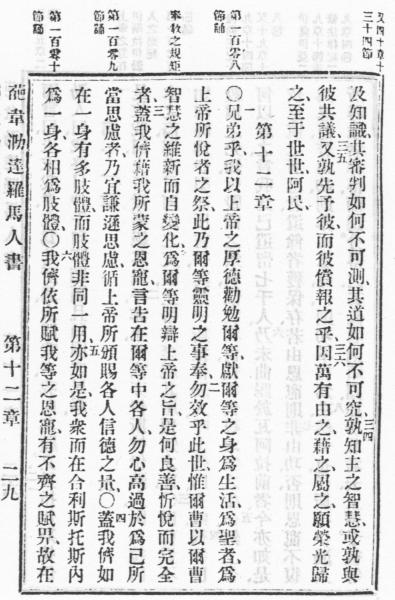 又四十章十
三十四節
第一百零八
節誦
宗敎之規矩
第一百零九
節誦
第一百零十
節誦
三四
及知識、其審判如何不可測、其道如何不可究、孰知主之智慧、或孰與
三五 三六
彼共議、又孰先予彼、而彼償報之乎、因萬有由之、藉之、屬之、願榮光歸
之至于世世、阿民、
第十二章
一
〇兄弟乎、我以上帝之厚德勸勉爾等、獻爾等之身爲生活、爲聖者、爲
二
上帝所悅者之祭、此乃爾等靈明之事奉、勿效乎此世、惟爾曹以爾曹
智慧之維新而自變化、爲爾等明辯上帝之旨、是何良善忻悅而完全
三
者、蓋我儕藉我所蒙之恩寵、言告在爾等中各人、勿心高過於爲己所
四
當思慮者、乃宜謙遜思慮、循上帝所頒賜各人信德之量、〇蓋我儕如
五
在一身有多肢體、而肢體非同一用、亦如是我衆而在合利斯托斯內
六
爲一身、各相爲肢體、〇我儕依所賦我等之恩寵、有不齊之賦畀、故在
葩韋泐達羅馬人書 第十二章 二九